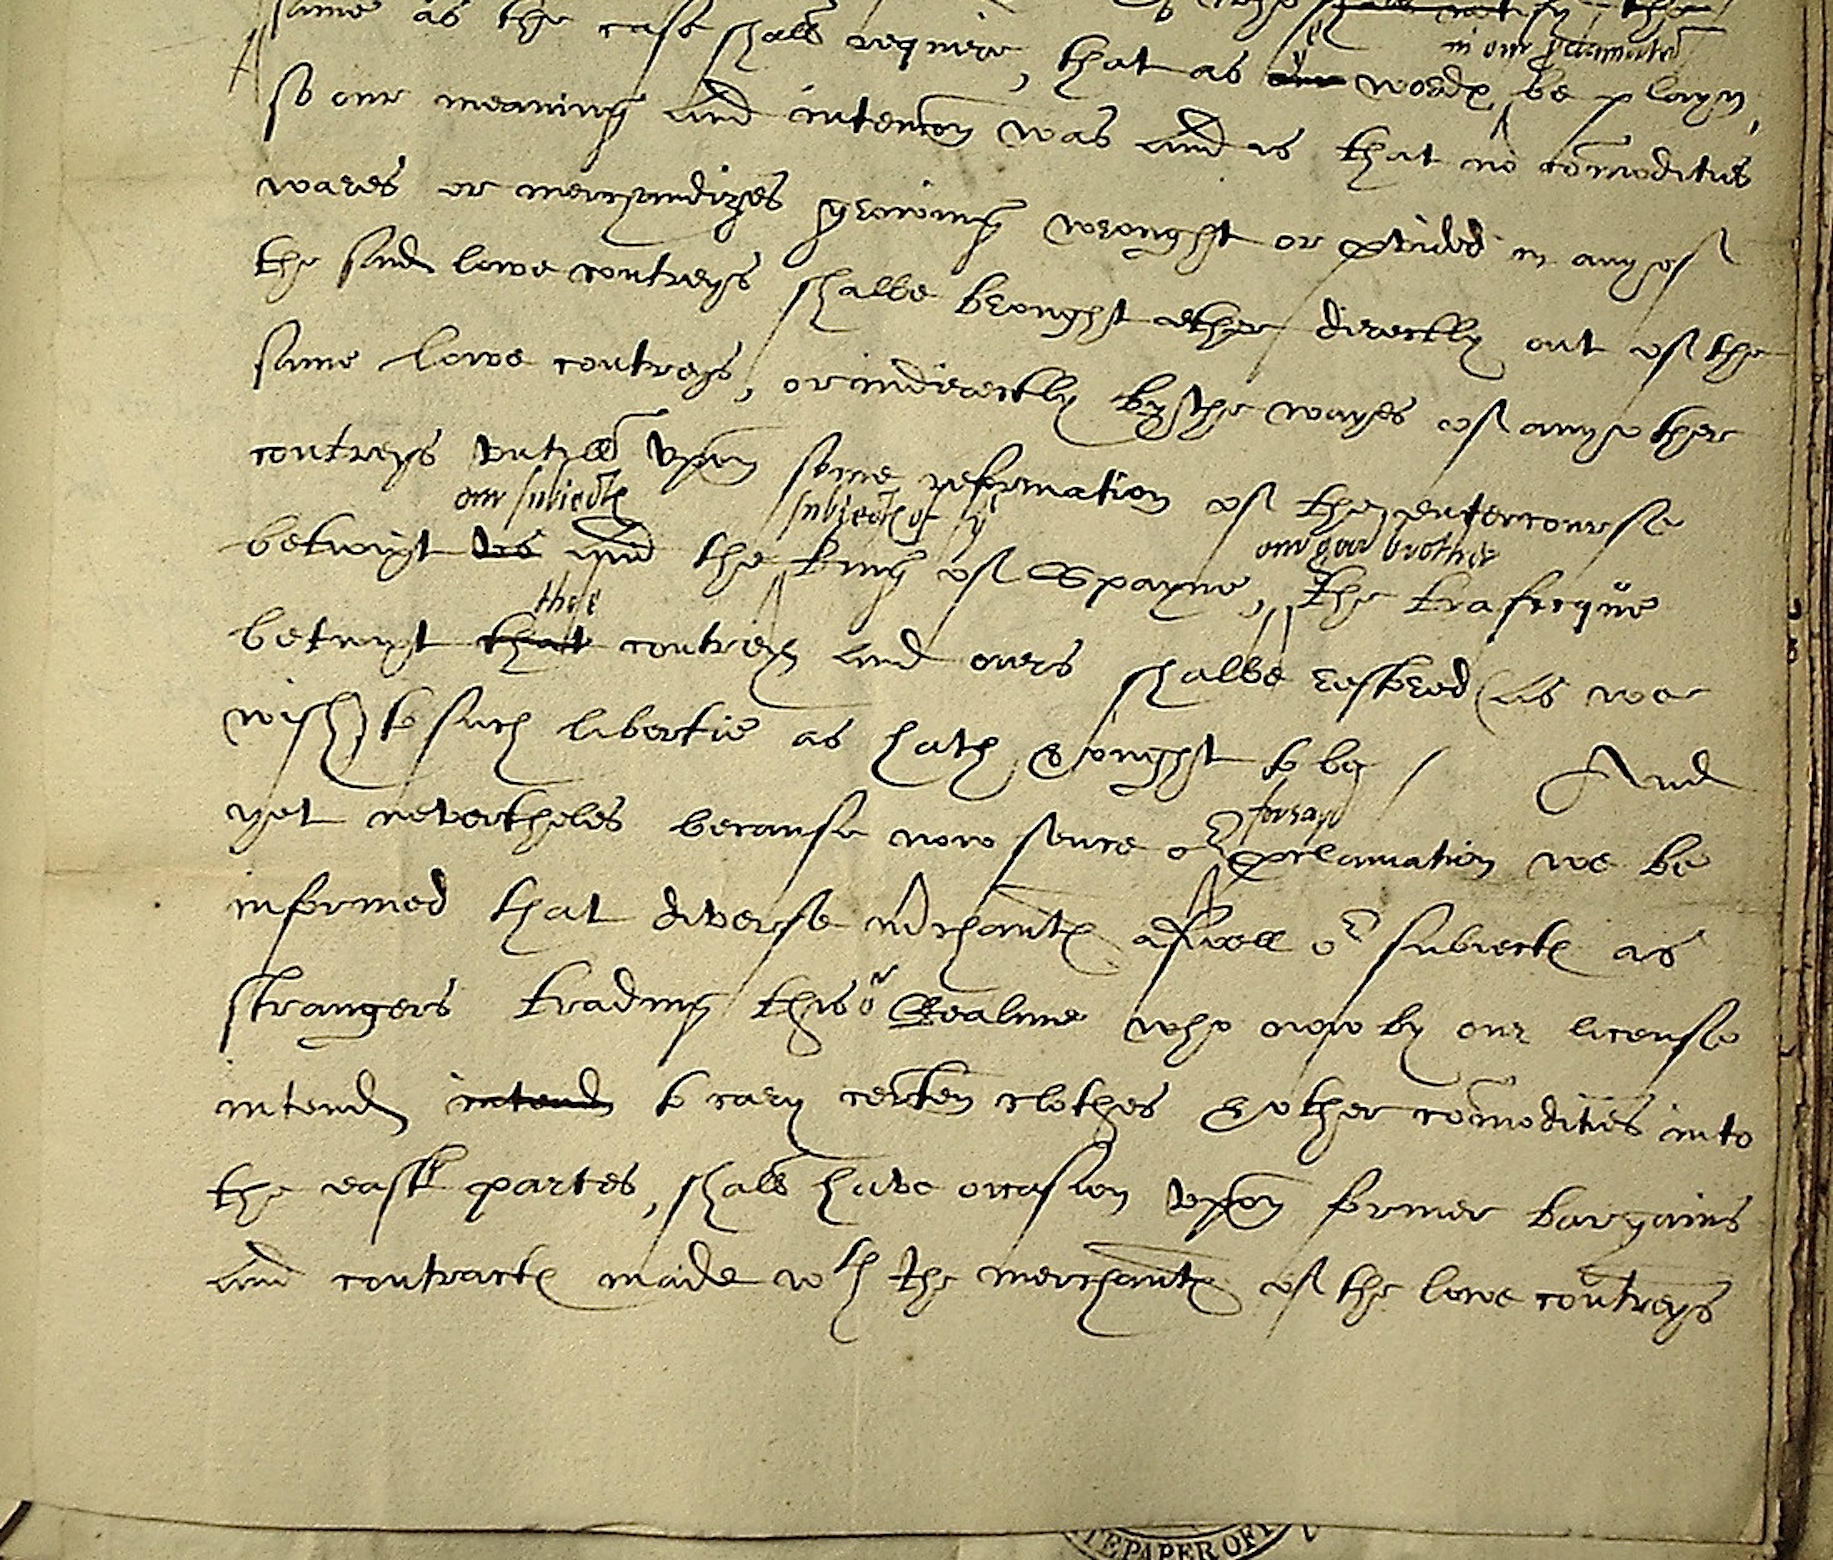 same as the case shall require, that as our yᵉ wordes in our proclamation be playn,
so our meaning and intencon was and is that no comodities
wares or merchandizes growing wrought or provided in any of
the said lowe contreys shalbe brought ether directly out of the
same lowe contreys, or indirectly by the wayes of any other
contreys untill upon some reformation of the entercourse
our subiectes subiectes of yᵉ
betwixt us and the king of Spayne, our good brother the trafficque
betwixt that thes contreys and ours shalbe restored (as we
wish) to such libertie as hath & ought to be / And
yet nevertheles because now sence oʳ forsayd proclamation we be
informed that diverse mrchantes aswell oʳ subiectes as
strangers trading this oʳ Realme who now by our license
intend intend to cary certen clothes & other comodities into
the east partes, shall have occasion upon former bargains
and contractes made wth the merchantes of the lowe contreys
TEPAPER OF